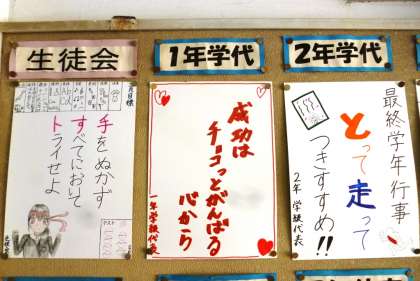 生徒会
1年学代
2年学代
月目標
手をぬかず
すべてにおいて
トライせよ
テスト
生徒会
成功は
チョコっとがんばる
心から
一年学級代表
最終学年行事
とって走って
つきすすめ!!
2年 学級代表